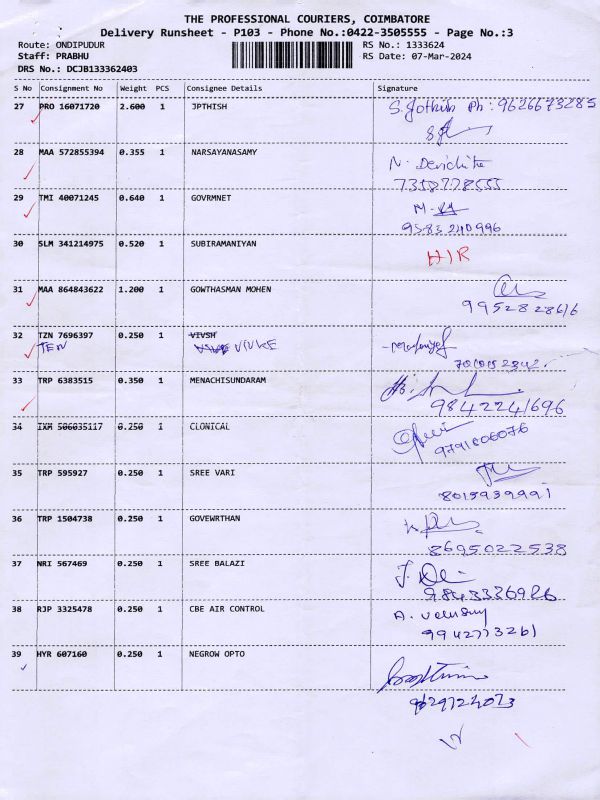 THE PROFESSIONAL COURIERS, COIMBATORE
Delivery Runsheet - P103 - Phone No.:0422-3505555 - Page No.:3
Route: ONDIPUDUR RS No.: 1333624
Staff: PRABHU RS Date: 07-Mar-2024
DRS No.: DCJB133362403
S No Consignment No Weight PCS Consignee Details Signature
27 PRO 16071720 2.600 1 JPTHISH S. Jothish Ph: 9626673285
28 MAA 572855394 0.355 1 NARSAYANASAMY N.
7358778555
29 TMI 40071245 0.640 1 GOVRMNET M.
9583240996
30 SLM 341214975 0.520 1 SUBIRAMANIYAN HIR
31 MAA 864843622 1.200 1 GOWTHASMAN MOHEN
9952828616
32 TZN 7696397 0.250 1 VIVSH
TEN VIVKE
33 TRP 6383515 0.350 1 MENACHISUNDARAM
9842241696
34 IXM 506035117 0.250 1 CLONICAL
9791606076
35 TRP 595927 0.250 1 SREE VARI
8015939991
36 TRP 1504738 0.250 1 GOVEWRTHAN
8695022538
37 NRI 567469 0.250 1 SREE BALAZI J.
9843336926
38 RJP 3325478 0.250 1 CBE AIR CONTROL A.
9942773261
39 HYR 607160 0.250 1 NEGROW OPTO